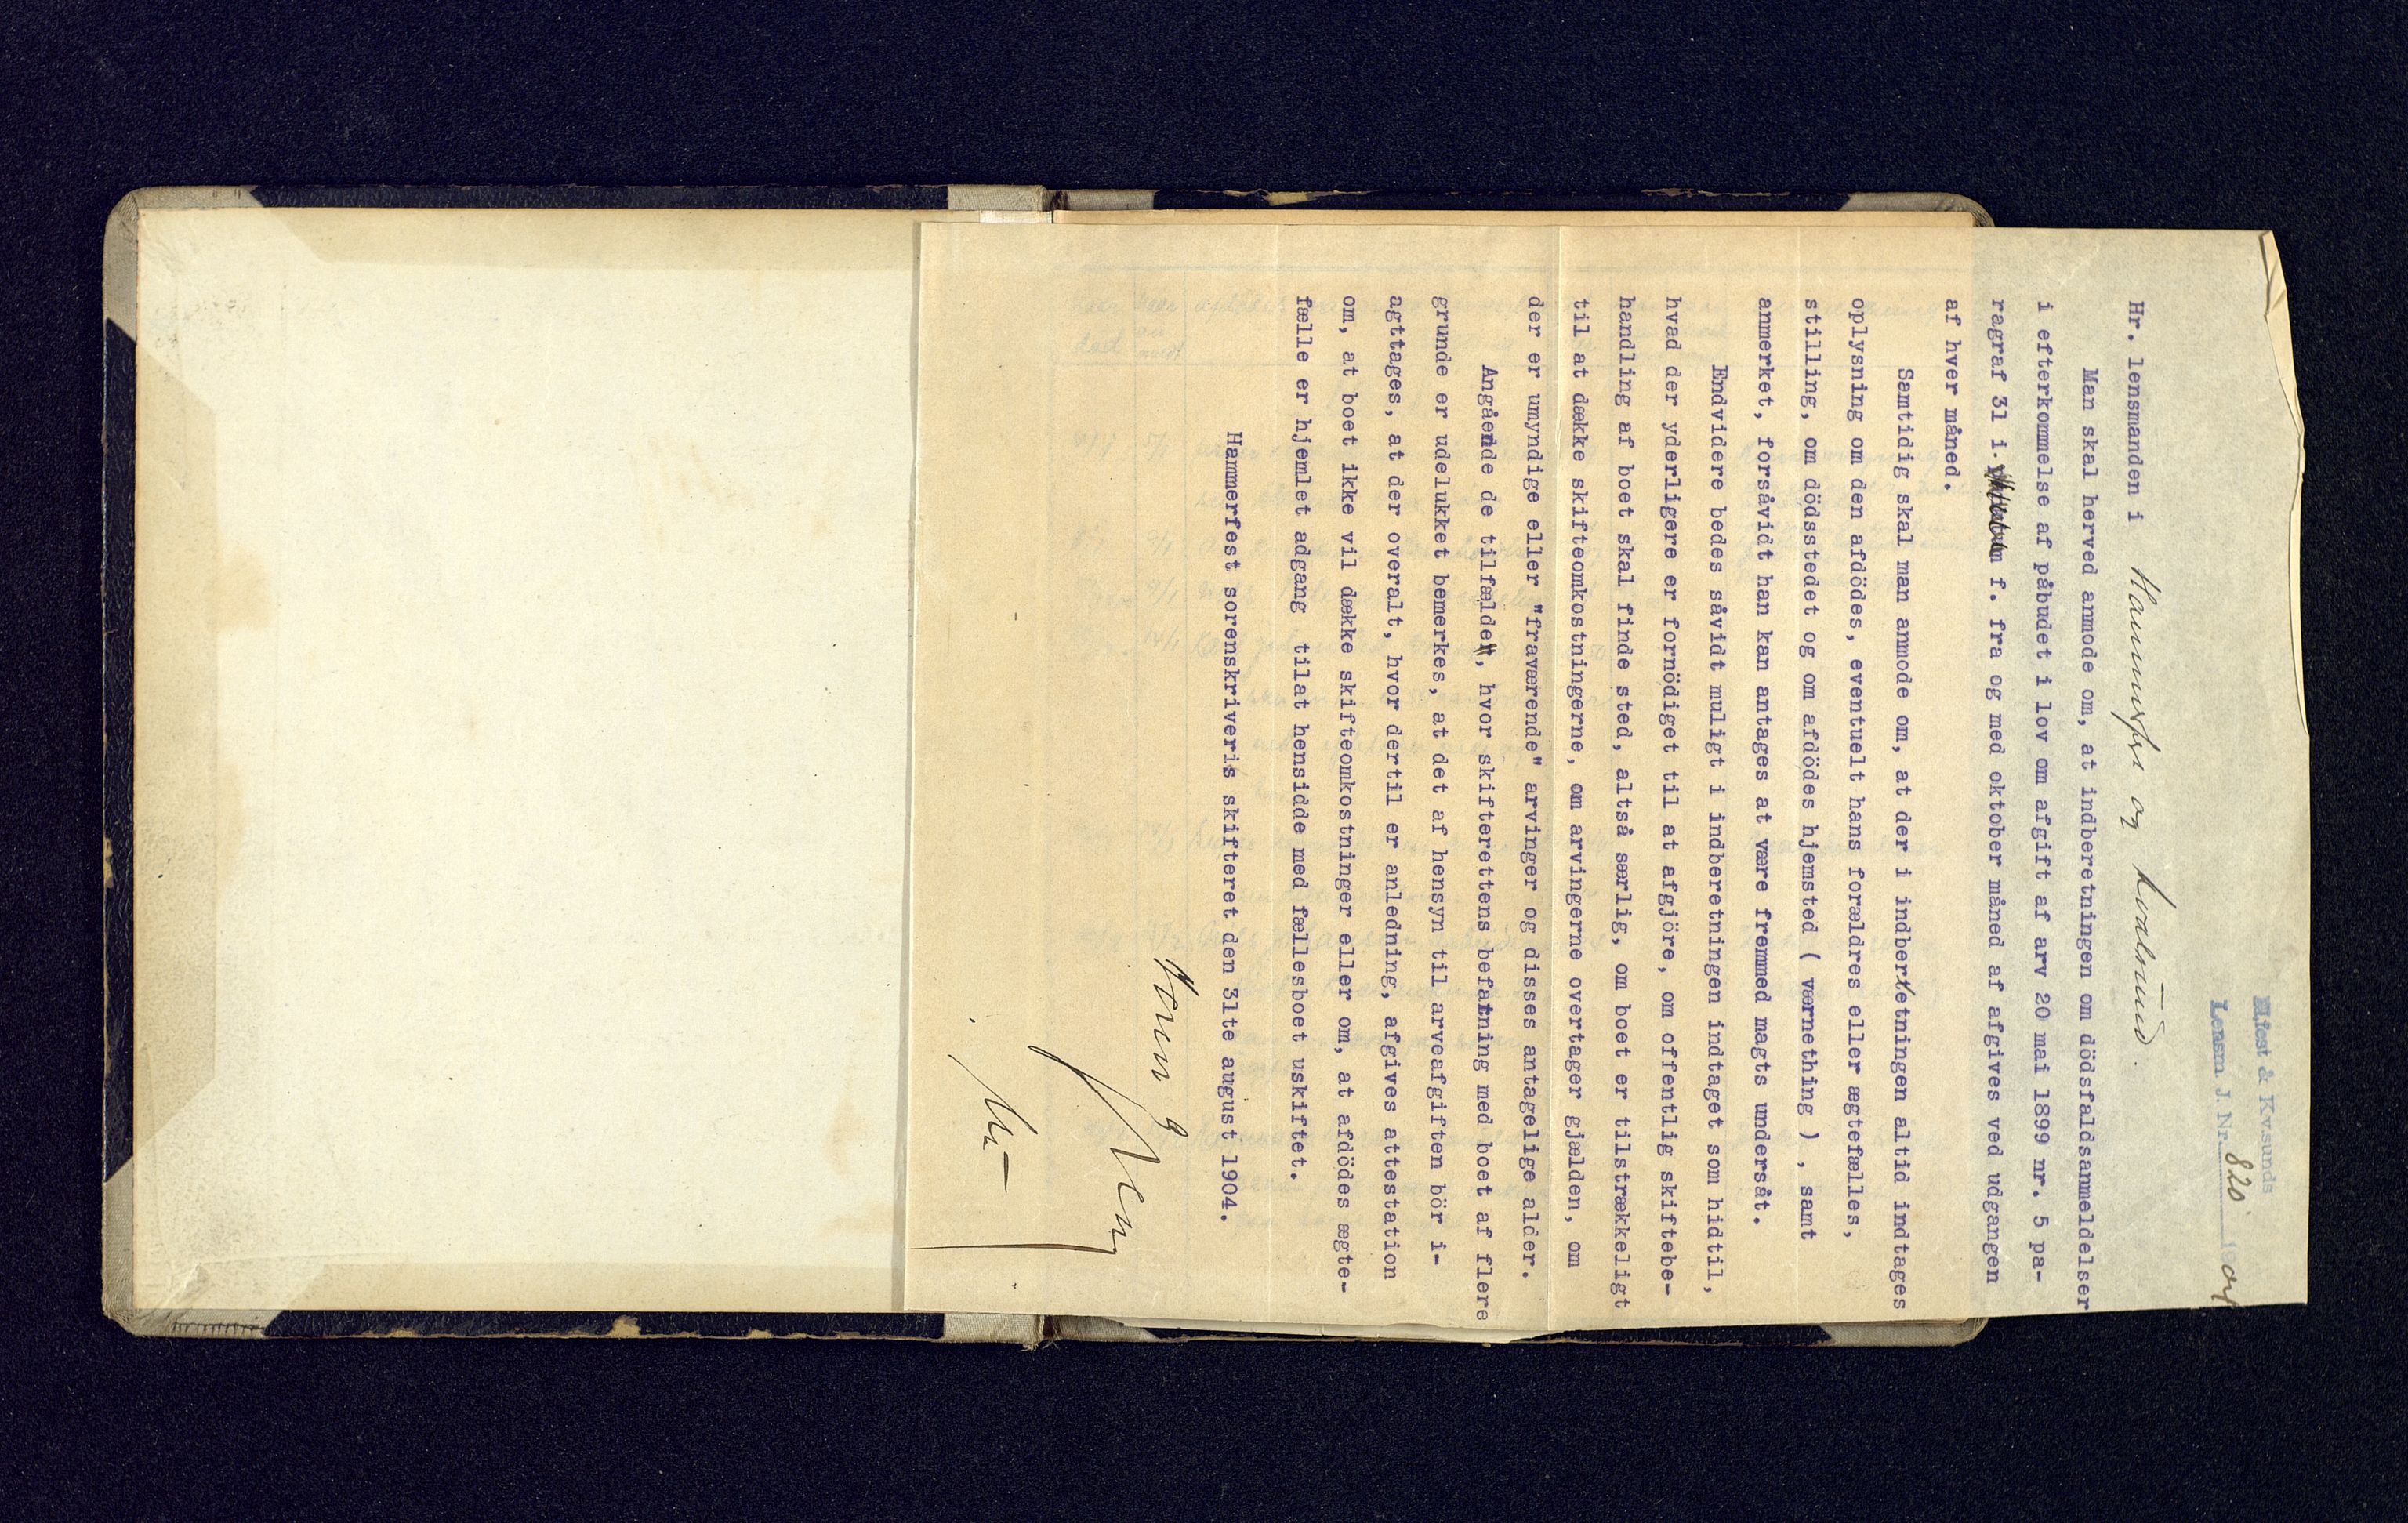 H.fest & Kv.sunds
Lensm. J. Nr. 820 1904
Hr. lensmanden i Hammerfest og Kvalsund.
Man skal herved anmode om, at indberetningen om dödsfaldsanmeldelser
i efterkommelse af påbudet i lov om afgift af arv 20 mai 1899 nr. 5 pa-
ragraf 31 i. f. fra og med oktober måned af afgives ved udgangen
af hver måned.
Samtidig skal man anmode om, at der i indberetningen altid indtages
oplysning om den afdödes, eventuelt hans forældres eller ægtefælles,
stilling, om dödsstedet og om afdödes hjemsted ( værnething ) , samt
anmerket, forsåvidt han kan antages at være fremmed magts undersåt.
Endvidere bedes såvidt muligt i indberetningen indtaget som hidtil,
hvad der yderligere er fornödiget til at afgjöre, om offentlig skiftebe-
handling af boet skal finde sted, altså særlig, om boet er tilstrækkeligt
til at dække skifteomkostningerne, om arvingerne overtager gjælden, om
der er umyndige eller "fraværende" arvinger og disses antagelige alder.
Angående de tilfælde, hvor skifterettens befatning med boet af flere
grunde er udelukket bemerkes, at det af hensyn til arveafgiften bör i-
agttages, at der overalt, hvor dertil er anledning, afgives attestation
om, at boet ikke vil dække skifteomkostninger eller om, at afdödes ægte-
fælle er hjemlet adgang tilat hensidde med fællesboet uskiftet.
Hammerfest sorenskriveris skifteret den 31te august 1904.